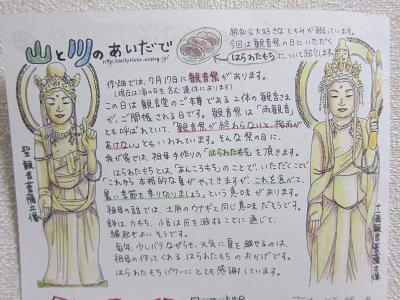 山と川のあいだで
旅と台所大好きな ともみが綴っています。
今回は 観音祭 の日にいただく
はらわたもち について紹介します。
作畑では、7月17日に観音祭があります。
(現在は海の日を含む連休にあります)
この日は観音堂のご本尊である2体の観音さま
が、ご開帳される日です。観音祭は「雨観音」
とも呼ばれていて、「観音祭が終わらないと、梅雨が
あけない」ともいわれています。そんな祭の日に、
我が家では、祖母手作りの「はらわたもち」を頂きます。
はらわたもちとは、「あんころもち」のことで、いただくことで
「これから本格的な夏がやってきますが、これを食べて、
暑い季節を乗りきりましょう」という意味があります。
祖母の話では、土用のウナギと同じ意味だそうです。
餅は、力もち、小豆は厄を滅することに通じて、
縁起もよいそうです。
毎年、少しバテながらも、元気に夏を越せるのは、
祖母の作ってくれる はらわたもち のおかげです。
はらわたもちパワーにとても感謝しています。
聖観音菩薩立像
十一面観音菩薩立像